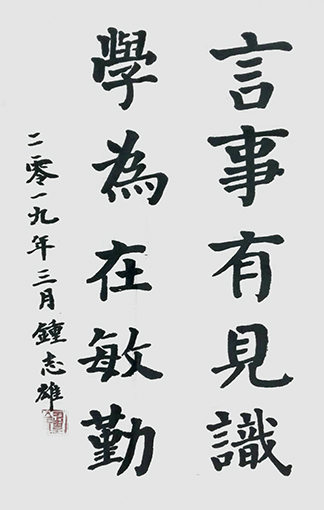 言事有見識
學為在敏勤
二零一九年三月鍾志雄